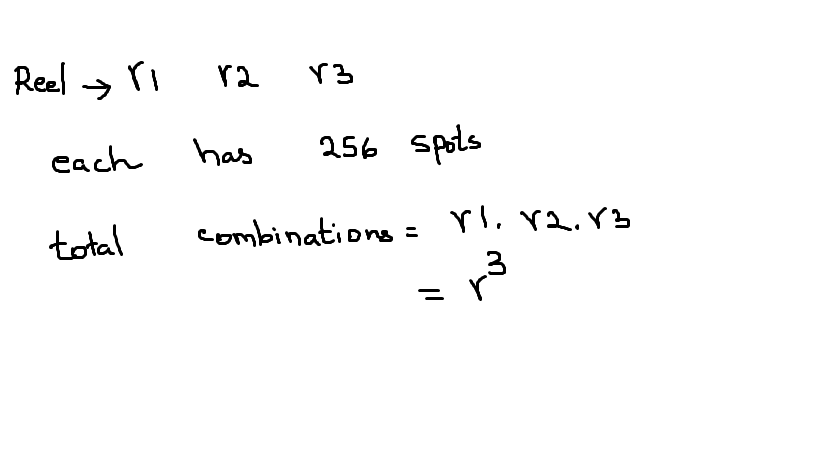 Reel → r1 r2 r3
each has 256 spots
total combinations = r1. r2. r3
= r³